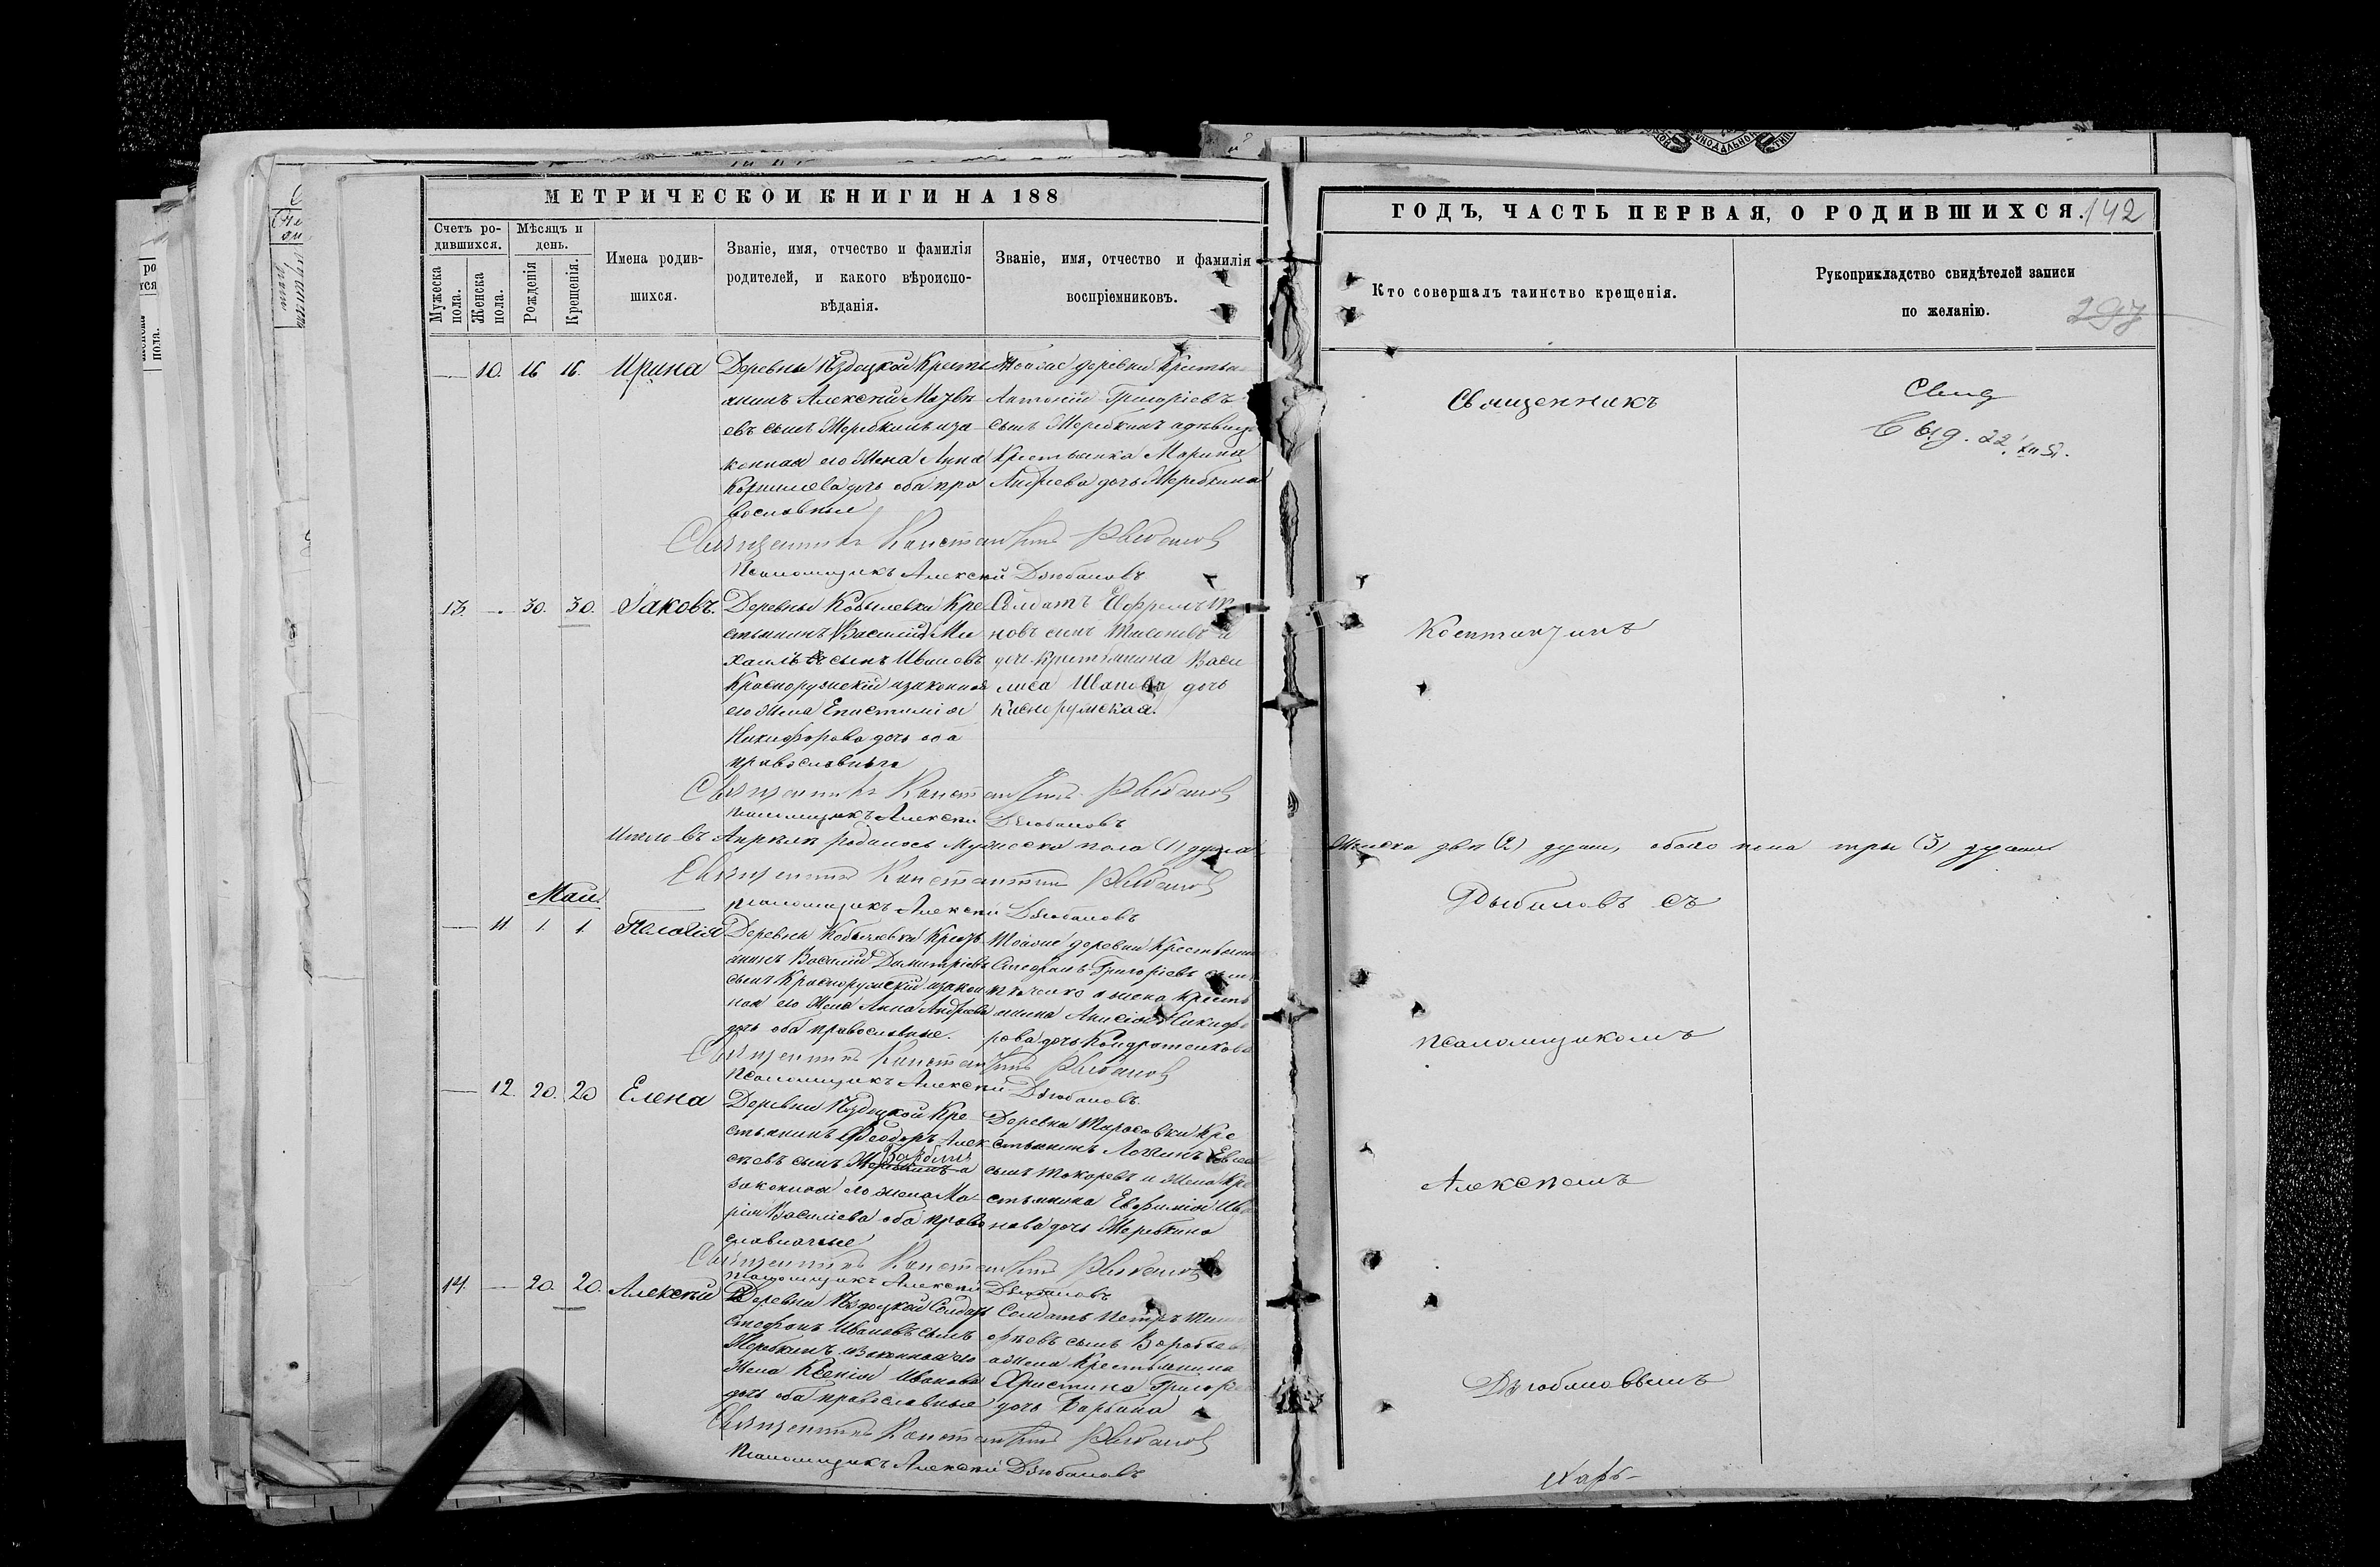 МЕТРИЧЕСКОЙ КНИГИ НА 188
Счетъ ро-
дившихся.
Мѣсяцъ и
день.
Мужеска
пола.
Женска
пола.
Рожденія
Крещенія.
Имена родив-
шихся.
Званіе, имя, отчество и фамилія
родителей, и какого вѣроиспо-
вѣданія.
Званіе, имя, отчество и фамилія
воспріемниковъ.
10. 16 16. Ирина
Деревни Крестья
анинъ Алексій
евъ сынъ Жеребкинъ иза
конная его Жена Анна
Корнилева дочь оба пра
вославные
Тойже деревни Крестья
Антоній Григоріевъ
сынъ Жеребкинъ
Крестьянка Марина
Андреева дочь Жеребкина
Священникъ Константинъ
Псаломщикъ Алексій Дзюбановъ
13. 30. 30. Іаковъ.
Деревни Кобылевки Кре
стьянинъ Василій Ми
сынъ Ивановъ
Красноружскій изаконная
его Жена Епистимія
Никифорова дочь оба
православные
Солдатъ
новъ сынъ и
дочь крестьянина Васи
лиса Иванова дочь
Священникъ Константинъ
псаломщикъ Алексій Дзюбановъ
Итого въ Апрѣлѣ родилось мужеска пола (1) душа
Священникъ Константинъ
псаломщикъ Алексій Дзюбановъ
Маій
11 1. 1. Пелагія
Деревни Кобылевки Кресть
янинъ Василій Димитріевъ
сынъ Красноружскій изакон
ная его Жена Анна Андреева
дочь оба православные.
Тойже деревни Крестьянинъ
Стефанъ Григоріевъ сынъ
жена кресть
янина Анисія Никифо
рова дочь Кондратенкова
Священникъ Константинъ
Псаломщикъ Алексій Дзюбановъ.
12. 20. 20 Елена
Деревни Кре
стьянинъ Феодоръ Алек
сѣевъ сынъ
законная его жена Ма
рія Василіева оба право
славные
Деревни Тарасовки Кре
стьянинъ
сынъ Токаревъ и Жена Кре
стьянина Евфимія Ива
нова дочь Жеребкина
Священникъ Константинъ
псаломщикъ Алексій Дзюбановъ
14. 20. 20. Алексій
Деревни Солдатъ
Стефанъ Ивановъ сынъ
Жеребкинъ изаконная его
Жена Ксенія Иванова
дочь оба православные
Солдатъ Петръ
сынъ Воробьевъ
Жена Крестьянина
Христина Григорьева
дочь
Священникъ Константинъ
Псаломщикъ Алексій Дзюбановъ
ГОДЪ, ЧАСТЬ ПЕРВАЯ, О РОДИВШИХСЯ. 142
Кто совершалъ таинство крещенія.
Рукоприкладство свидѣтелей записи
по желанію.
297
Священникъ
Выд. 22
Константинъ
Женска двѣ (2) души, обоего пола три (3) души
съ
псаломщикомъ
Алексѣемъ
Дзюбановымъ